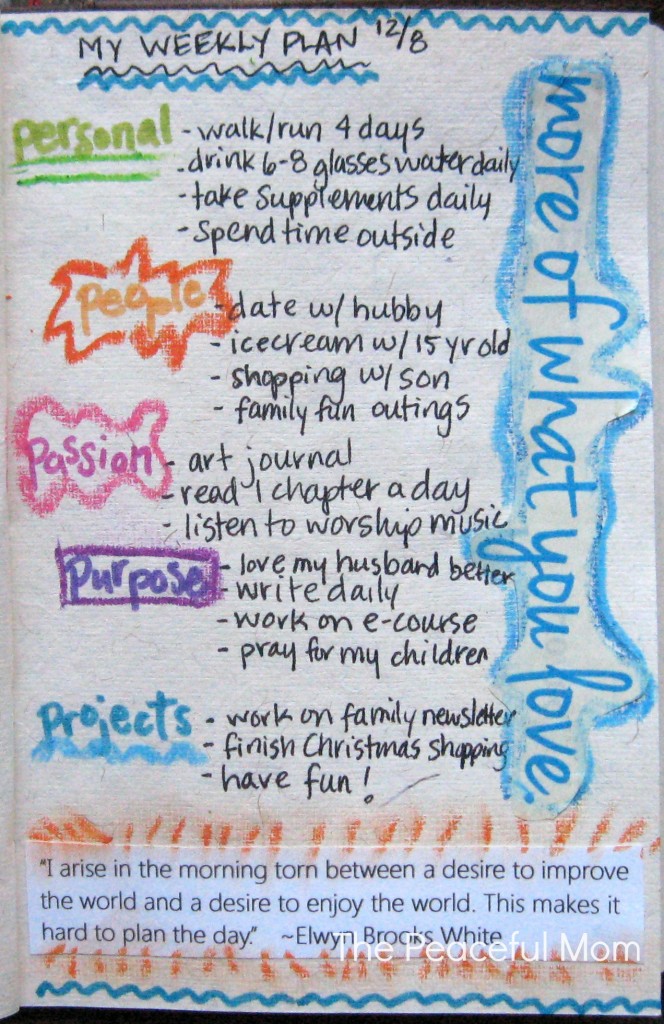 MY WEEKLY PLAN 12/8
personal
- walk/run 4 days
- drink 6-8 glasses water daily
- take supplements daily
- spend time outside
people
- date w/ hubby
- icecream w/ 15 yr old
- shopping w/ son
- family fun outings
passion
- art journal
- read 1 chapter a day
- listen to worship music
purpose
- love my husband better
- write daily
- work on e-course
- pray for my children
projects
- work on family newsletter
- finish Christmas shopping
- have fun!
more of what you love.
"I arise in the morning torn between a desire to improve
the world and a desire to enjoy the world. This makes it
hard to plan the day." ~Elwyn Brooks White
The Peaceful Mom